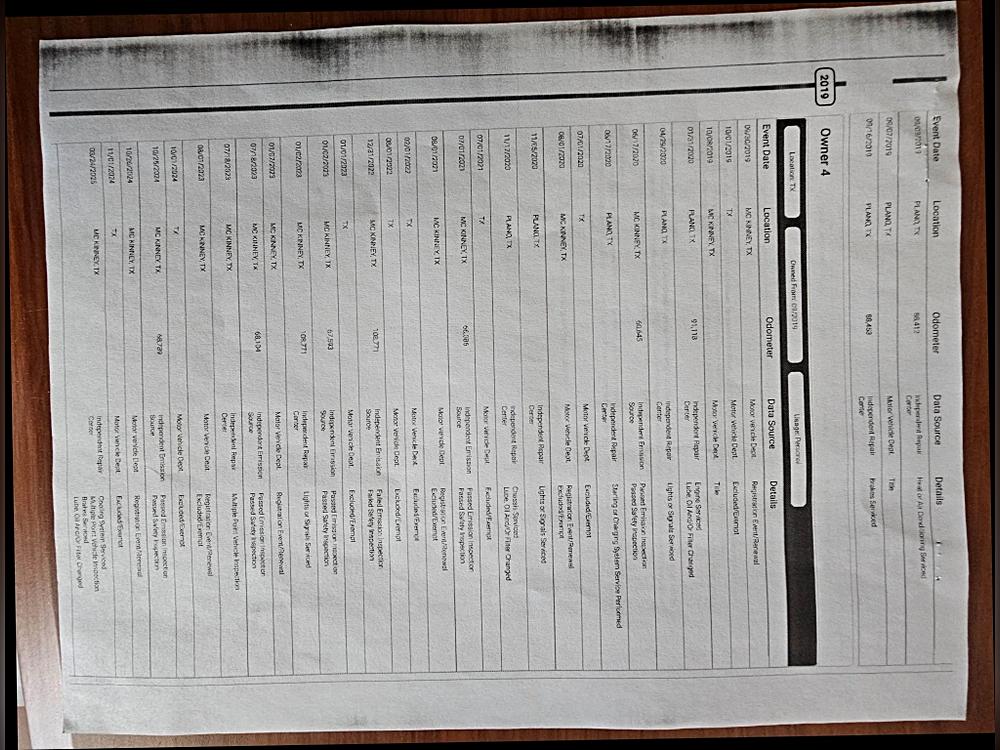 Event Date Location Odometer Data Source Details
PLANO, TX 88,412 Independent Repair Heat or Air Conditioning Serviced
Center
09/07/2019 PLANO, TX Motor Vehicle Dept. Title
09/16/2019 PLANO, TX 88,453 Independent Repair Brakes Serviced
Center
2019
Owner 4
Location: TX Owned From: 09/2019 Usage: Personal
Event Date Location Odometer Data Source Details
09/30/2019 MC KINNEY, TX Motor Vehicle Dept. Registration Event/Renewal
10/01/2019 TX Motor Vehicle Dept. Excluded/Exempt
10/08/2019 MC KINNEY, TX Motor Vehicle Dept. Title
01/31/2020 PLANO, TX 91,118 Independent Repair Engine Serviced
Center Lube, Oil And/Or Filter Changed
04/29/2020 PLANO, TX Independent Repair Lights or Signals Serviced
Center
06/17/2020 MC KINNEY, TX 60,645 Independent Emission Passed Emission Inspection
Source Passed Safety Inspection
06/17/2020 PLANO, TX Independent Repair Starting or Charging System Service Performed
Center
07/01/2020 TX Motor Vehicle Dept. Excluded/Exempt
08/01/2020 MC KINNEY, TX Motor Vehicle Dept. Registration Event/Renewal
Excluded/Exempt
11/05/2020 PLANO, TX Independent Repair Lights or Signals Serviced
Center
11/12/2020 PLANO, TX Independent Repair Chassis Serviced
Center Lube, Oil And/Or Filter Changed
07/01/2021 TX Motor Vehicle Dept. Excluded/Exempt
07/01/2021 MC KINNEY, TX Independent Emission Passed Emission Inspection
Source Passed Safety Inspection
08/01/2021 MC KINNEY, TX Motor Vehicle Dept. Registration Event/Renewal
Excluded/Exempt
TX Motor Vehicle Dept. Excluded/Exempt
08/01/2022 TX Motor Vehicle Dept. Excluded/Exempt
12/31/2022 MC KINNEY, TX 108,771 Independent Emission Failed Emission Inspection
Source Failed Safety Inspection
01/01/2023 TX Motor Vehicle Dept. Excluded/Exempt
01/02/2023 MC KINNEY, TX 67,593 Independent Emission Passed Emission Inspection
Source Passed Safety Inspection
01/02/2023 MC KINNEY, TX 108,771 Independent Repair Lights or Signals Serviced
Center
01/07/2023 MC KINNEY, TX Motor Vehicle Dept. Registration Event/Renewal
07/18/2023 MC KINNEY, TX 68,104 Independent Emission Passed Emission Inspection
Source Passed Safety Inspection
07/18/2023 MC KINNEY, TX Independent Repair Multiple Point Vehicle Inspection
Center
08/01/2023 MC KINNEY, TX Motor Vehicle Dept. Registration Event/Renewal
Excluded/Exempt
10/01/2024 TX Motor Vehicle Dept. Excluded/Exempt
10/29/2024 MC KINNEY, TX 68,789 Independent Emission Passed Emission Inspection
Source Passed Safety Inspection
10/29/2024 MC KINNEY, TX Motor Vehicle Dept. Registration Event/Renewal
11/01/2024 TX Motor Vehicle Dept. Excluded/Exempt
03/24/2025 MC KINNEY, TX Independent Repair Cooling System Serviced
Center Multiple Point Vehicle Inspection
Brakes Serviced
Lube, Oil And/Or Filter Changed